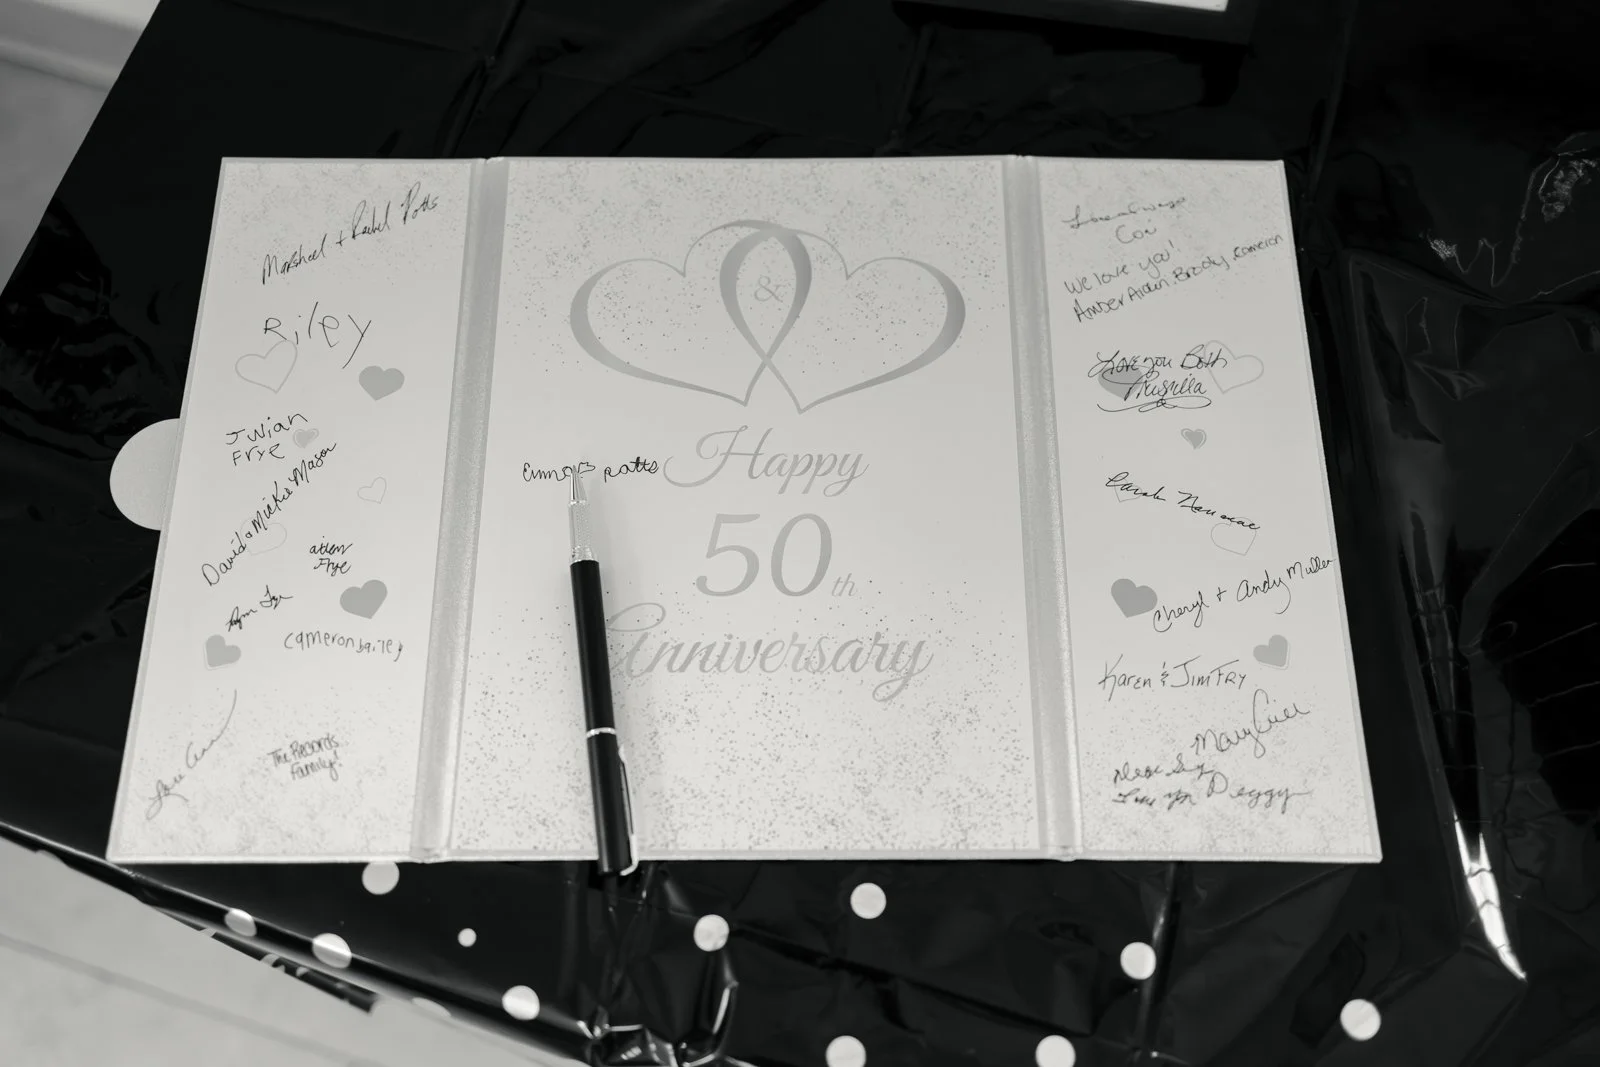 Marshall + Rachel Potts
Riley
Julian
Frye
David & Mickie Mason
Frye
cameron bailey
The Records
Family!
&
Happy
50th
Anniversary
potts
We love you!
Amber Aidan. Brody. Cameron
Love you Both
Prisilla
Cheryl + Andy Muller
Karen & Jim Fry
Mary
Love you Peggy